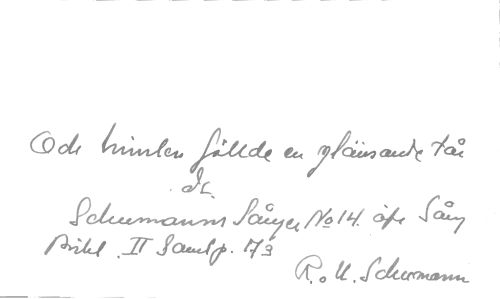 Och himlen fällde en glänsande tår
Schumanns Sånger No 14.
II Saml p. 173
R. o U. Schumann